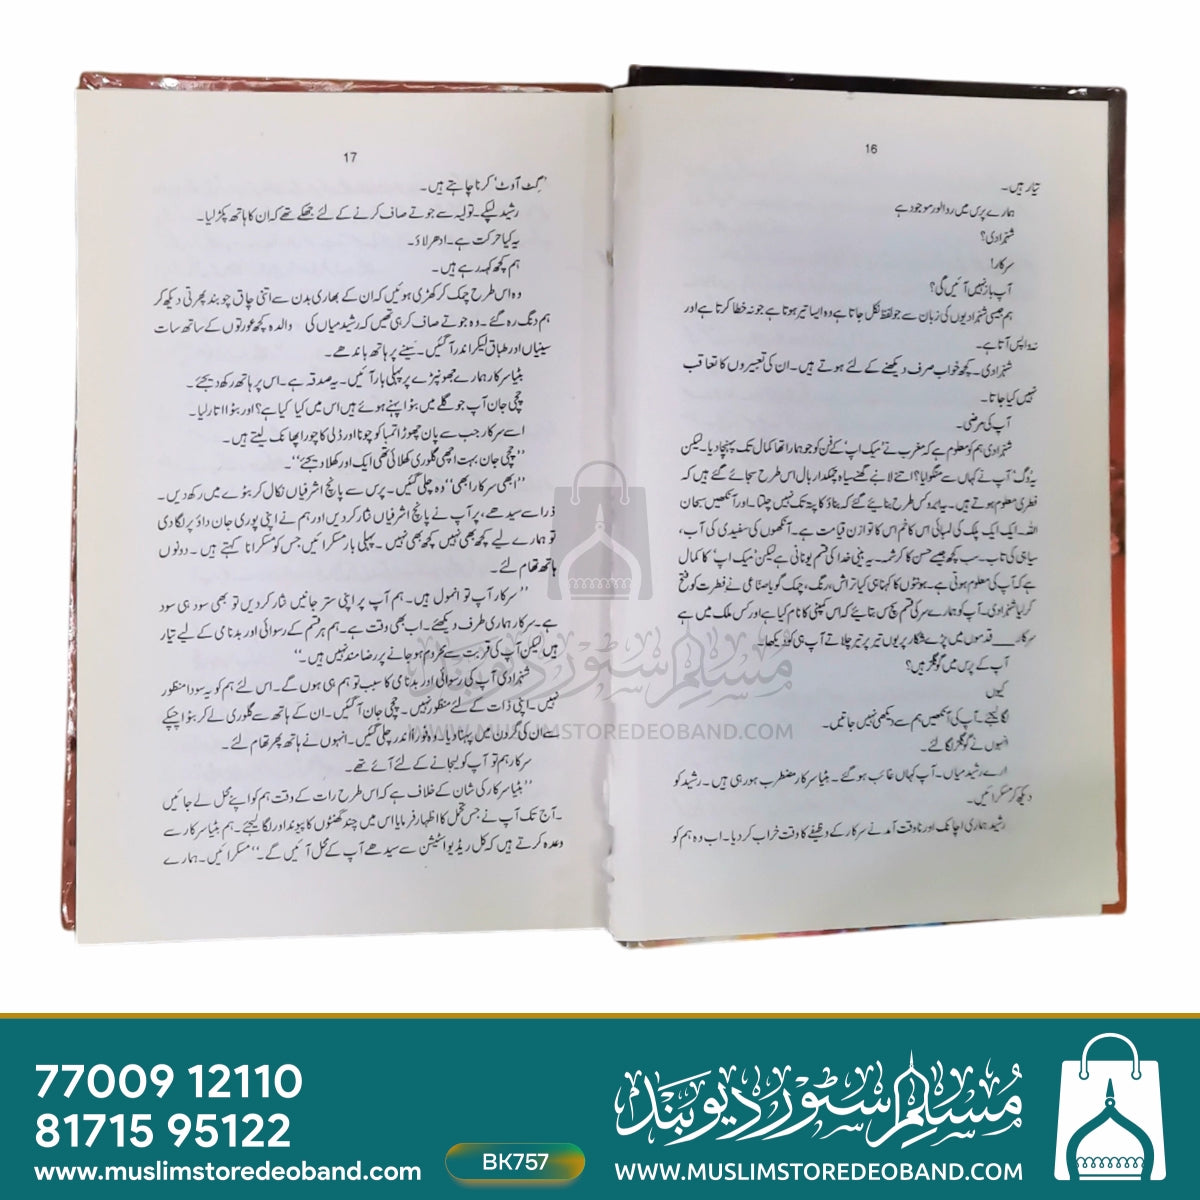 16
تیار ہیں۔
ہمارے پرس میں ردالور موجود ہے
شہزادی؟
سرکار!
آپ باز نہیں آئیں گی؟
ہم جیسی شہزادیوں کی زبان سے جو لفظ نکل جاتا ہے وہ ایسا تیر ہوتا ہے جو نہ خطا کرتا ہے اور
نہ واپس آتا ہے۔
شہزادی۔ کچھ خواب صرف دیکھنے کے لئے ہوتے ہیں۔ ان کی تعبیروں کا تعاقب
نہیں کیا جاتا۔
آپ کی مرضی۔
شہزادی ہم کو معلوم ہے کہ مغرب نے 'میک اپ' کے فن کو جو ہمارا تھا کمال تک پہنچا دیا۔ لیکن
یہ 'وگ' آپ نے کہاں سے منگوایا؟ اتنے لانبے گھنے سیاہ چمکدار بال اس طرح سجائے گئے ہیں کہ
فطری معلوم ہوتے ہیں۔ یہ ابرو کس طرح بنائے گئے کہ بناؤ کا پتہ تک نہیں چلتا۔ اور آنکھیں سبحان
اللہ۔ ایک ایک پلک کی لمبائی اس کا خم اس کا توازن قیامت ہے۔ آنکھوں کی سفیدی کی آب،
سیاہی کی تاب۔ سب کچھ جیسے حسن کا کرشمہ۔ یہ بینی خدا کی قسم یونانی ہے لیکن 'میک اپ' کا کمال
ہے کہ آپ کی معلوم ہوتی ہے۔ ہونٹوں کا کہنا ہی کیا تراش، رنگ، چمک گویا صناعی نے فطرت کو فتح
کر لیا شہزادی۔ آپ کو ہمارے سر کی قسم سچ بتائیے کہ اس کمپنی کا نام کیا ہے اور کس ملک میں ہے
سرکار___قدموں میں پڑے شکار پر یوں تیر پر تیر چلاتے آپ ہی کو دیکھا۔
آپ کے پرس میں گوگلز ہیں؟
کیوں
لگا لیجئے۔ آپ کی آنکھیں ہم سے دیکھی نہیں جاتیں۔
انہوں نے گوگلز لگا لئے۔
ارے رشید میاں۔ آپ کہاں غائب ہو گئے۔ بٹیا سرکار مضطرب ہو رہی ہیں۔ رشید کو
دیکھ کر مسکرائیں۔
رشید ہماری اچانک اور نا وقت آمد نے سرکار کے وظیفے کا وقت خراب کر دیا۔ اب وہ ہم کو
17
'گٹ آوٹ' کرنا چاہتے ہیں۔
رشید لپکے۔ تولیہ سے جوتے صاف کرنے کے لئے جھکے تھے کہ ان کا ہاتھ پکڑ لیا۔
یہ کیا حرکت ہے۔ ادھر لاؤ۔
ہم کچھ کہہ رہے ہیں۔
وہ اس طرح جھک کر کھڑی ہوئیں کہ ان کے بھاری بدن سے اتنی چاق چوبند پھرتی دیکھ کر
ہم دنگ رہ گئے۔ وہ جوتے صاف کر ہی تھیں کہ رشید میاں کی والدہ کچھ عورتوں کے ساتھ سات
سینیاں اور طباق لیکر اندر آ گئیں۔ سینے پر ہاتھ باندھے۔
بٹیا سرکار ہمارے جھونپڑے پر پہلی بار آئیں۔ یہ صدقہ ہے۔ اس پر ہاتھ رکھ دیجئے۔
چچی جان آپ جو گلے میں بٹوا پہنے ہوئے ہیں اس میں کیا کیا ہے؟ اور بٹوا اتار لیا۔
اے سرکار جب سے پان چھوڑا تمباکو چونا اور ڈلی کا چورا پھانک لیتے ہیں۔
"چچی جان بہت اچھی گلوری کھلائی تھی ایک اور کھلا دیجئے"۔
"ابھی سرکار ابھی" وہ چلی گئیں۔ پرس سے پانچ اشرفیاں نکال کر بٹوے میں رکھ دیں۔
ذرا سے سیدھے، پر آپ نے پانچ اشرفیاں نثار کر دیں اور ہم نے اپنی پوری جان داؤ پر لگا دی
تو ہمارے لیے کچھ بھی نہیں کچھ بھی نہیں۔ پہلی بار مسکرائیں جس کو مسکرانا کہتے ہیں۔ دونوں
ہاتھ تھام لئے۔
"سرکار آپ تو انمول ہیں۔ ہم آپ پر اپنی ستر جانیں نثار کر دیں تو بھی سود ہی سود
ہے۔ سرکار ہماری طرف دیکھئے۔ اب بھی وقت ہے۔ ہم ہر قسم کے رسوائی اور بدنامی کے لیے تیار
ہیں لیکن آپ کی قربت سے محروم ہو جانے پر رضامند نہیں ہیں۔"
شہزادی آپ کی رسوائی اور بدنامی کا سبب تو ہم ہی ہوں گے۔ اس لئے ہم کو یہ سودا منظور
نہیں۔ اپنی ذات کے لئے منظور نہیں۔ چچی جان آ گئیں۔ ان کے ہاتھ سے گلوری لے کر بٹوا چپکے
سے ان کی گردن میں پہنا دیا۔ وہ فوراً اندر چلی گئیں۔ انہوں نے ہاتھ پھر تھام لئے۔
سرکار ہم تو آپ کو لیجانے کے لئے آئے تھے۔
"بٹیا سرکار کی شان کے خلاف ہے کہ اس طرح رات کے وقت ہم کو اپنے محل لے جائیں
۔ آج تک آپ نے جس تحمل کا اظہار فرمایا اس میں چند گھنٹوں کا پیوند اور لگا لیجئے۔ ہم بٹیا سرکار سے
وعدہ کرتے ہیں کہ کل ریڈیو اسٹیشن سے سیدھے آپ کے محل آئیں گے۔" مسکرائیں۔ ہمارے
مسلم سٹور دیوبند
WWW.MUSLIMSTOREDEOBAND.COM
77009 12110
81715 95122
www.muslimstoredeoband.com
BK757
مسلم سٹور دیوبند
WWW.MUSLIMSTOREDEOBAND.COM